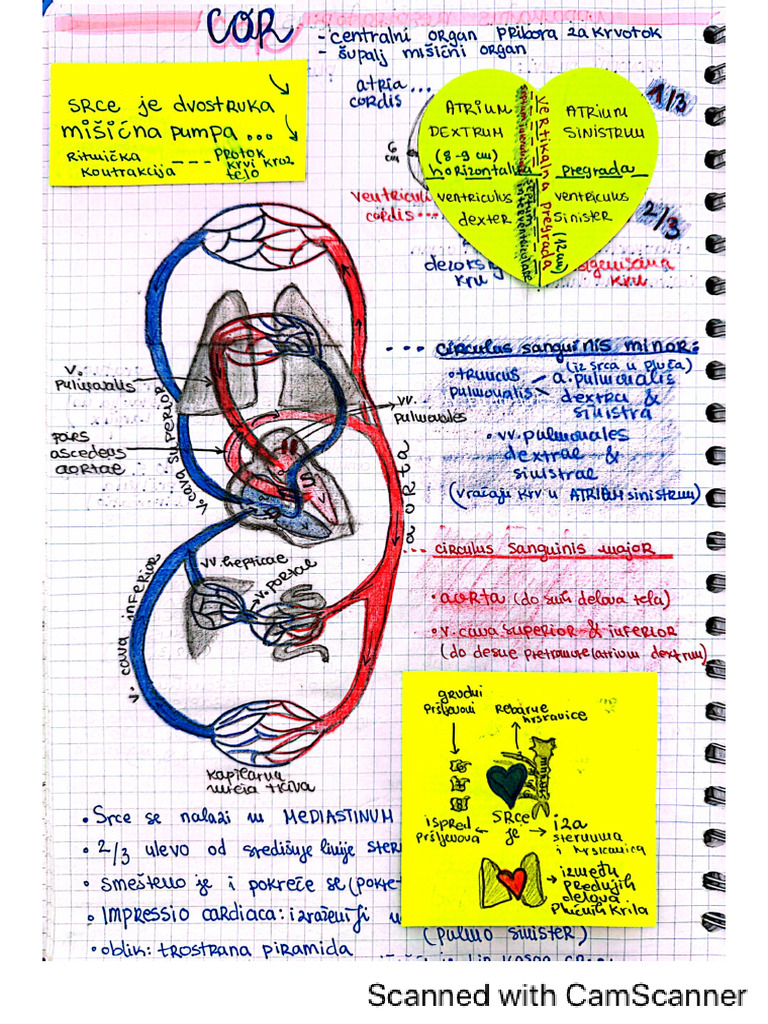 COR
- centralni organ pribora za krvotok
- šupalj mišićni organ
SRCE je dvostruka
mišićna pumpa ...
Ritmička --- protok
kontrakcija krvi kroz
telo
atria ...
cordis
6
cm
ATRIUM
DEXTRUM
(8-9 cm)
ATRIUM
SINISTRUM
1/3
horizontalna pregrada
VERTIKALNA PREGRADA
(12cm)
septum
interventriculare
ventriculi
cordis...
ventriculus
dexter
ventriculus
sinister
2/3
krv
krv
v.
pulmonalis
pars
ascedens
aortae
v. cava superior
vv.
pulmonales
aorta
v. cava inferior
vv. hepticae
v. portae
kapilarna
mreža tkiva
--- circulus sanguinis minor:
(iz srca u pluća)
• truncus - a. pulmonalis
pulmonalis dextra &
sinistra
• vv. pulmonales
dextrae &
sinistrae
(vraćaju krv u ATRIUM sinistrum)
... circulus sanguinis major
• aorta (do svih delova tela)
• v. cava superior & inferior
(do desne pretkomore/atrium dextrum)
grudni
pršljenovi
Rebarne
hrskavice
ispred
pršljenova
SRCE
je
iza
sternuma
i hrskavica
između
prednjih
delova
plućnih krila
• Srce se nalazi u MEDIASTINUM
• 2/3 ulevo od središnje linije ster
• smešteno je i pokreće se (pokret
• IMPRESSIO cardiaca: izraženiji
(pulmo sinister)
• oblik: trostrana piramida
Scanned with CamScanner